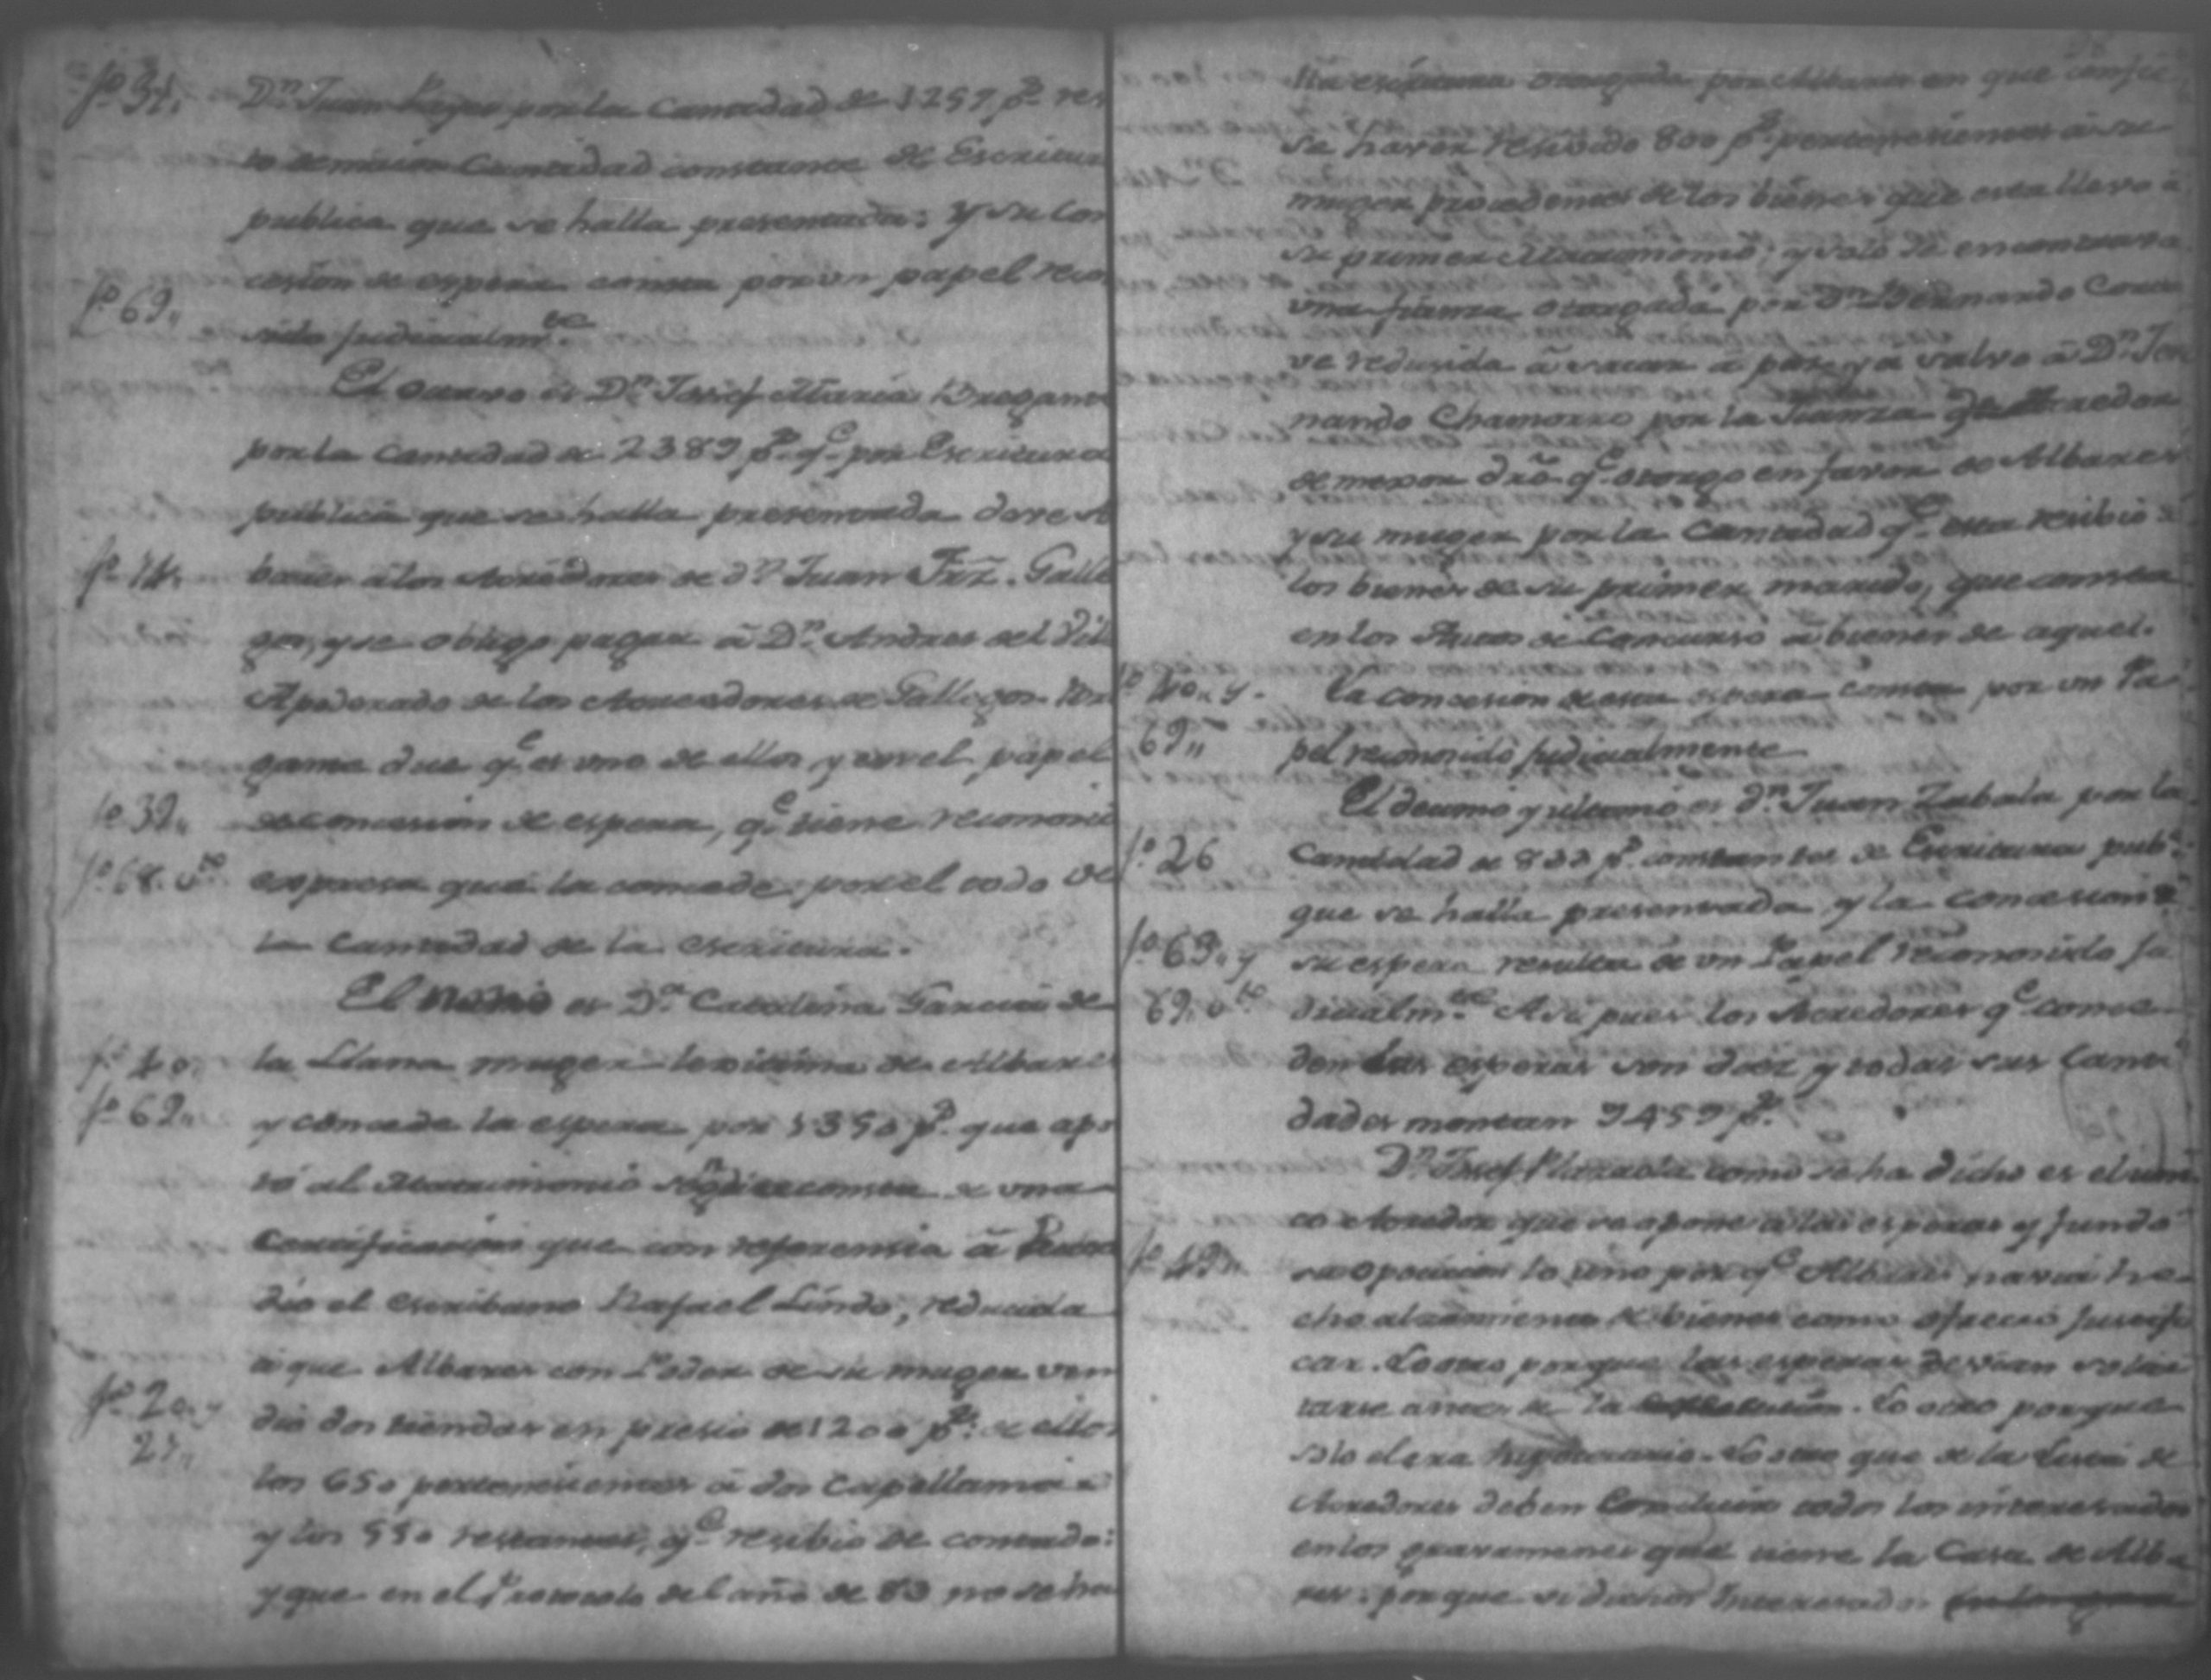 fo 34,, Dn Juan por la Cantidad de 1257 ps res
to Cantidad constante de Escritura
publica que se halla presentada: y su con
cesion de espera consta por un papel reco
fo 69,, sido judicialmte
El octavo es Dn Josef Maria Bregante
por la Cantidad de 2389 ps qe por Escritura
publica que se halla presentada
fo 14,, bares a los Acreedores de dn Juan Frz. Galle
gos, y se obligo pagar â Dn Andres del Vill
Apoderado de los Acreedores de Gallegos.
gante qe es uno de ellos y en el papel
fo 39,, de concesion de espera, qe tiene reconoci
fo 68. vto expresa que la concede por el todo de
la Cantidad de la escritura.
El nono es Da Catalina Garcia de
fo 40,, la Llana muger lexitima de Albares
fo 69,, y concede la espera por 1350 ps que apor
to al Matrimonio consta de una
Certificacion que con referencia â
dio el escribano Rafael Lindo, reducida
a que Albares con Poder de su muger ven
fo 20,, y dio dos tiendas en presio de 1200 ps: de ellos
21,, los 650 pertenecientes â dos Capellanias
y los 550 restantes, qe resibio de contado:
y que en el Protocolo del año de 83 no se ha
lla escritura otorgada por Albares en que confie
se haver resivido 800 ps pertenecientes â su
muger procedentes de los bienes que esta llevo a
su primer Matrimonio; y solo se encontrava
una fianza otorgada por Dn Bernardo
ve reducida â sacar â paz y a salvo â Dn Fer
nando Chamorro por la Fianza de Acreedor
de mejor dro qe otorgo en favor de Albares
y su muger por la Cantidad qe esta resibio de
los bienes de su primer marido, que consta
en los Autos de Concurso â bienes de aquel.
fo 40,, y La concesion de esta espera consta por un Pa
69,, pel reconosido judicialmente
El decimo y ultimo es dn Juan Zabala por la
fo 26 Cantidad de 833 ps constantes de Escritura pubca
que se halla presentada y la concesion de
fo 69,, y su espera resulta de un Papel reconosido ju
69. vto dicialmte Asi pues los Acreedores qe conce
den las esperas son diez y todas sus Canti
dades montan 9459 ps.
Dn Josef como se ha dicho es el uni
co Acreedor que se opone a las esperas y funda
fo 49,, su oposicion lo uno por qe Albares havia he
cho alzamiento de bienes como ofrecio justifi
car. Lo otro porque las esperas devian solici
tarse antes de la. Lo otro porque
solo el era hypotecario. Lo otro que de la Lista de
Acreedores deben excluirse todos los interesados
en los gravamenes que tiene la Casa de Alba
res: porque si dichos Interesados